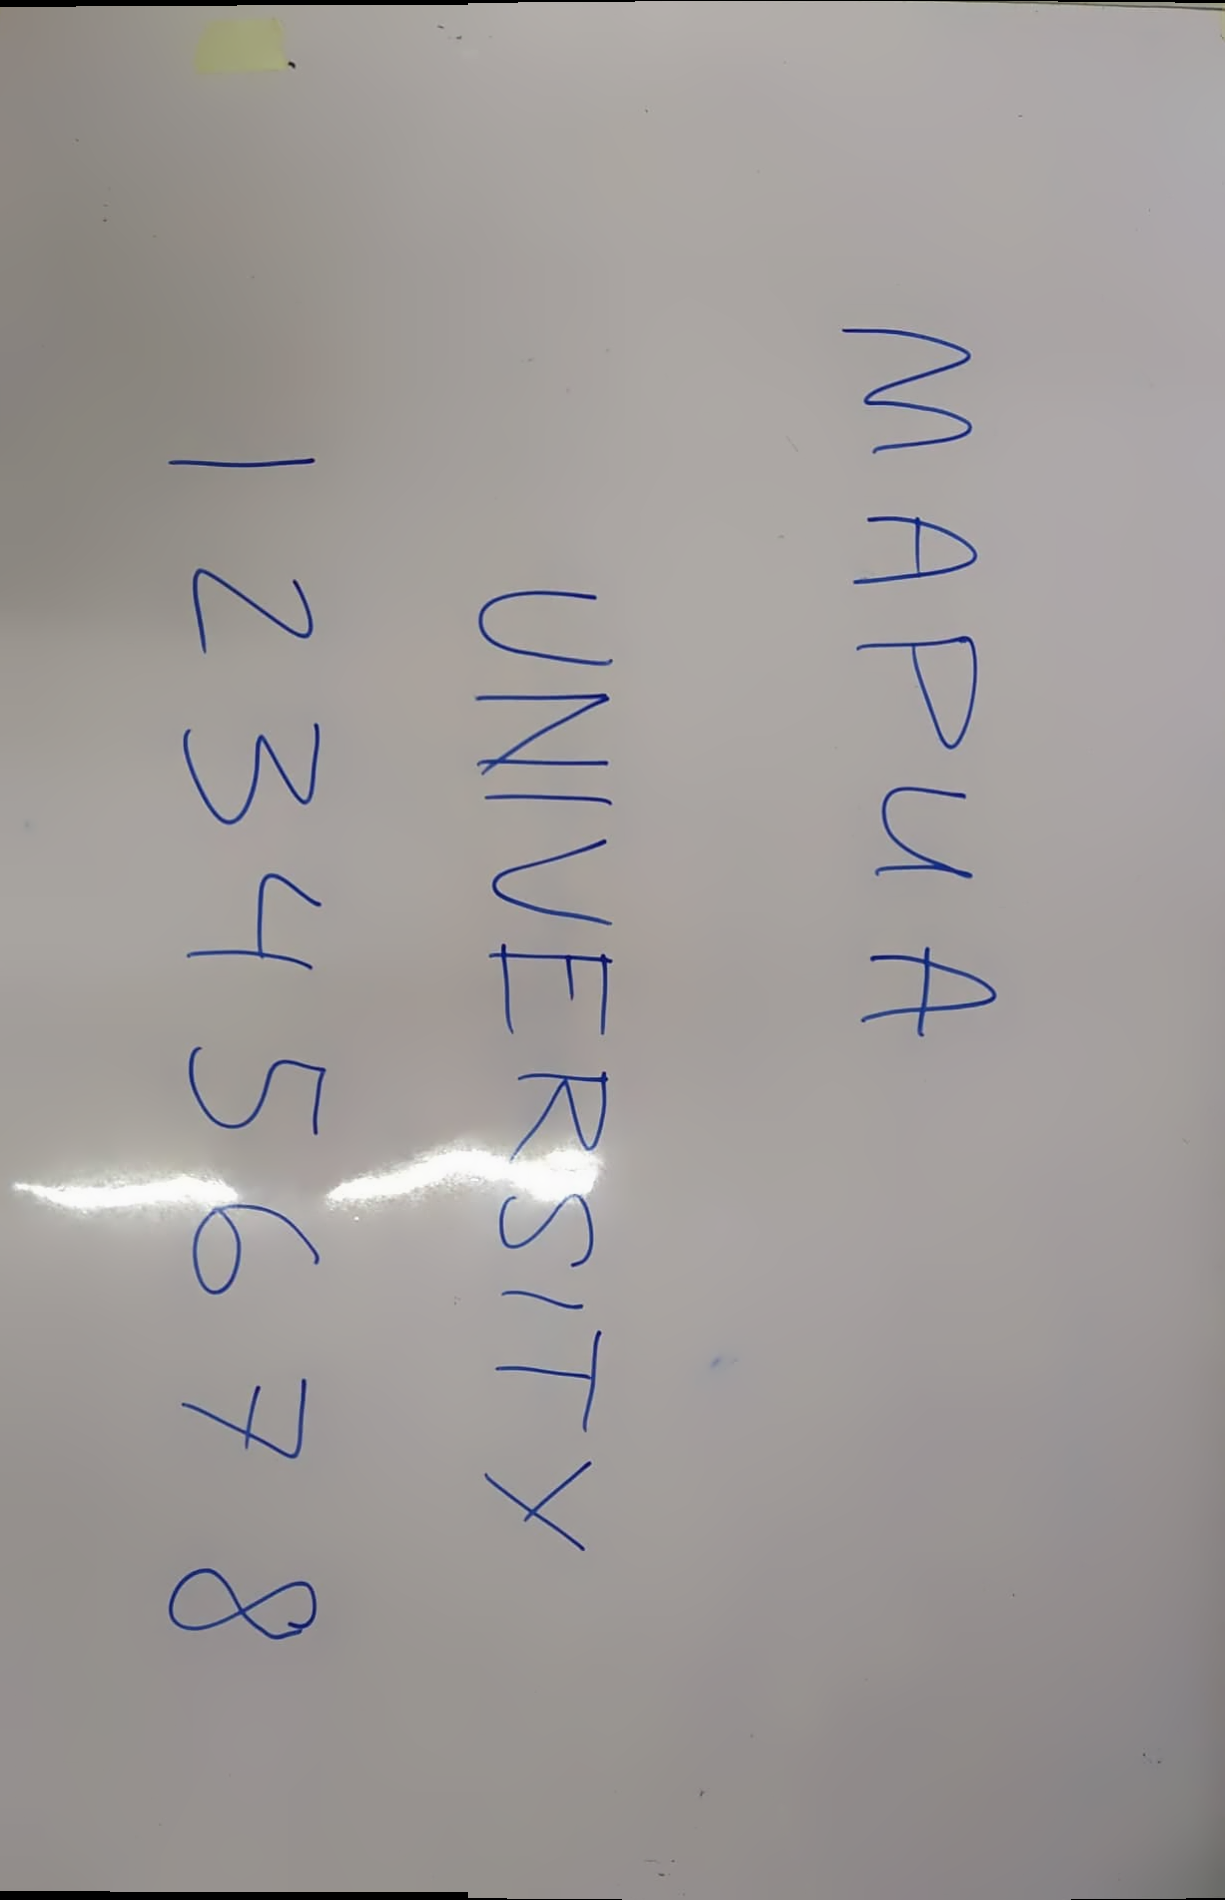 MAPUA
UNIVERSITY
12345678